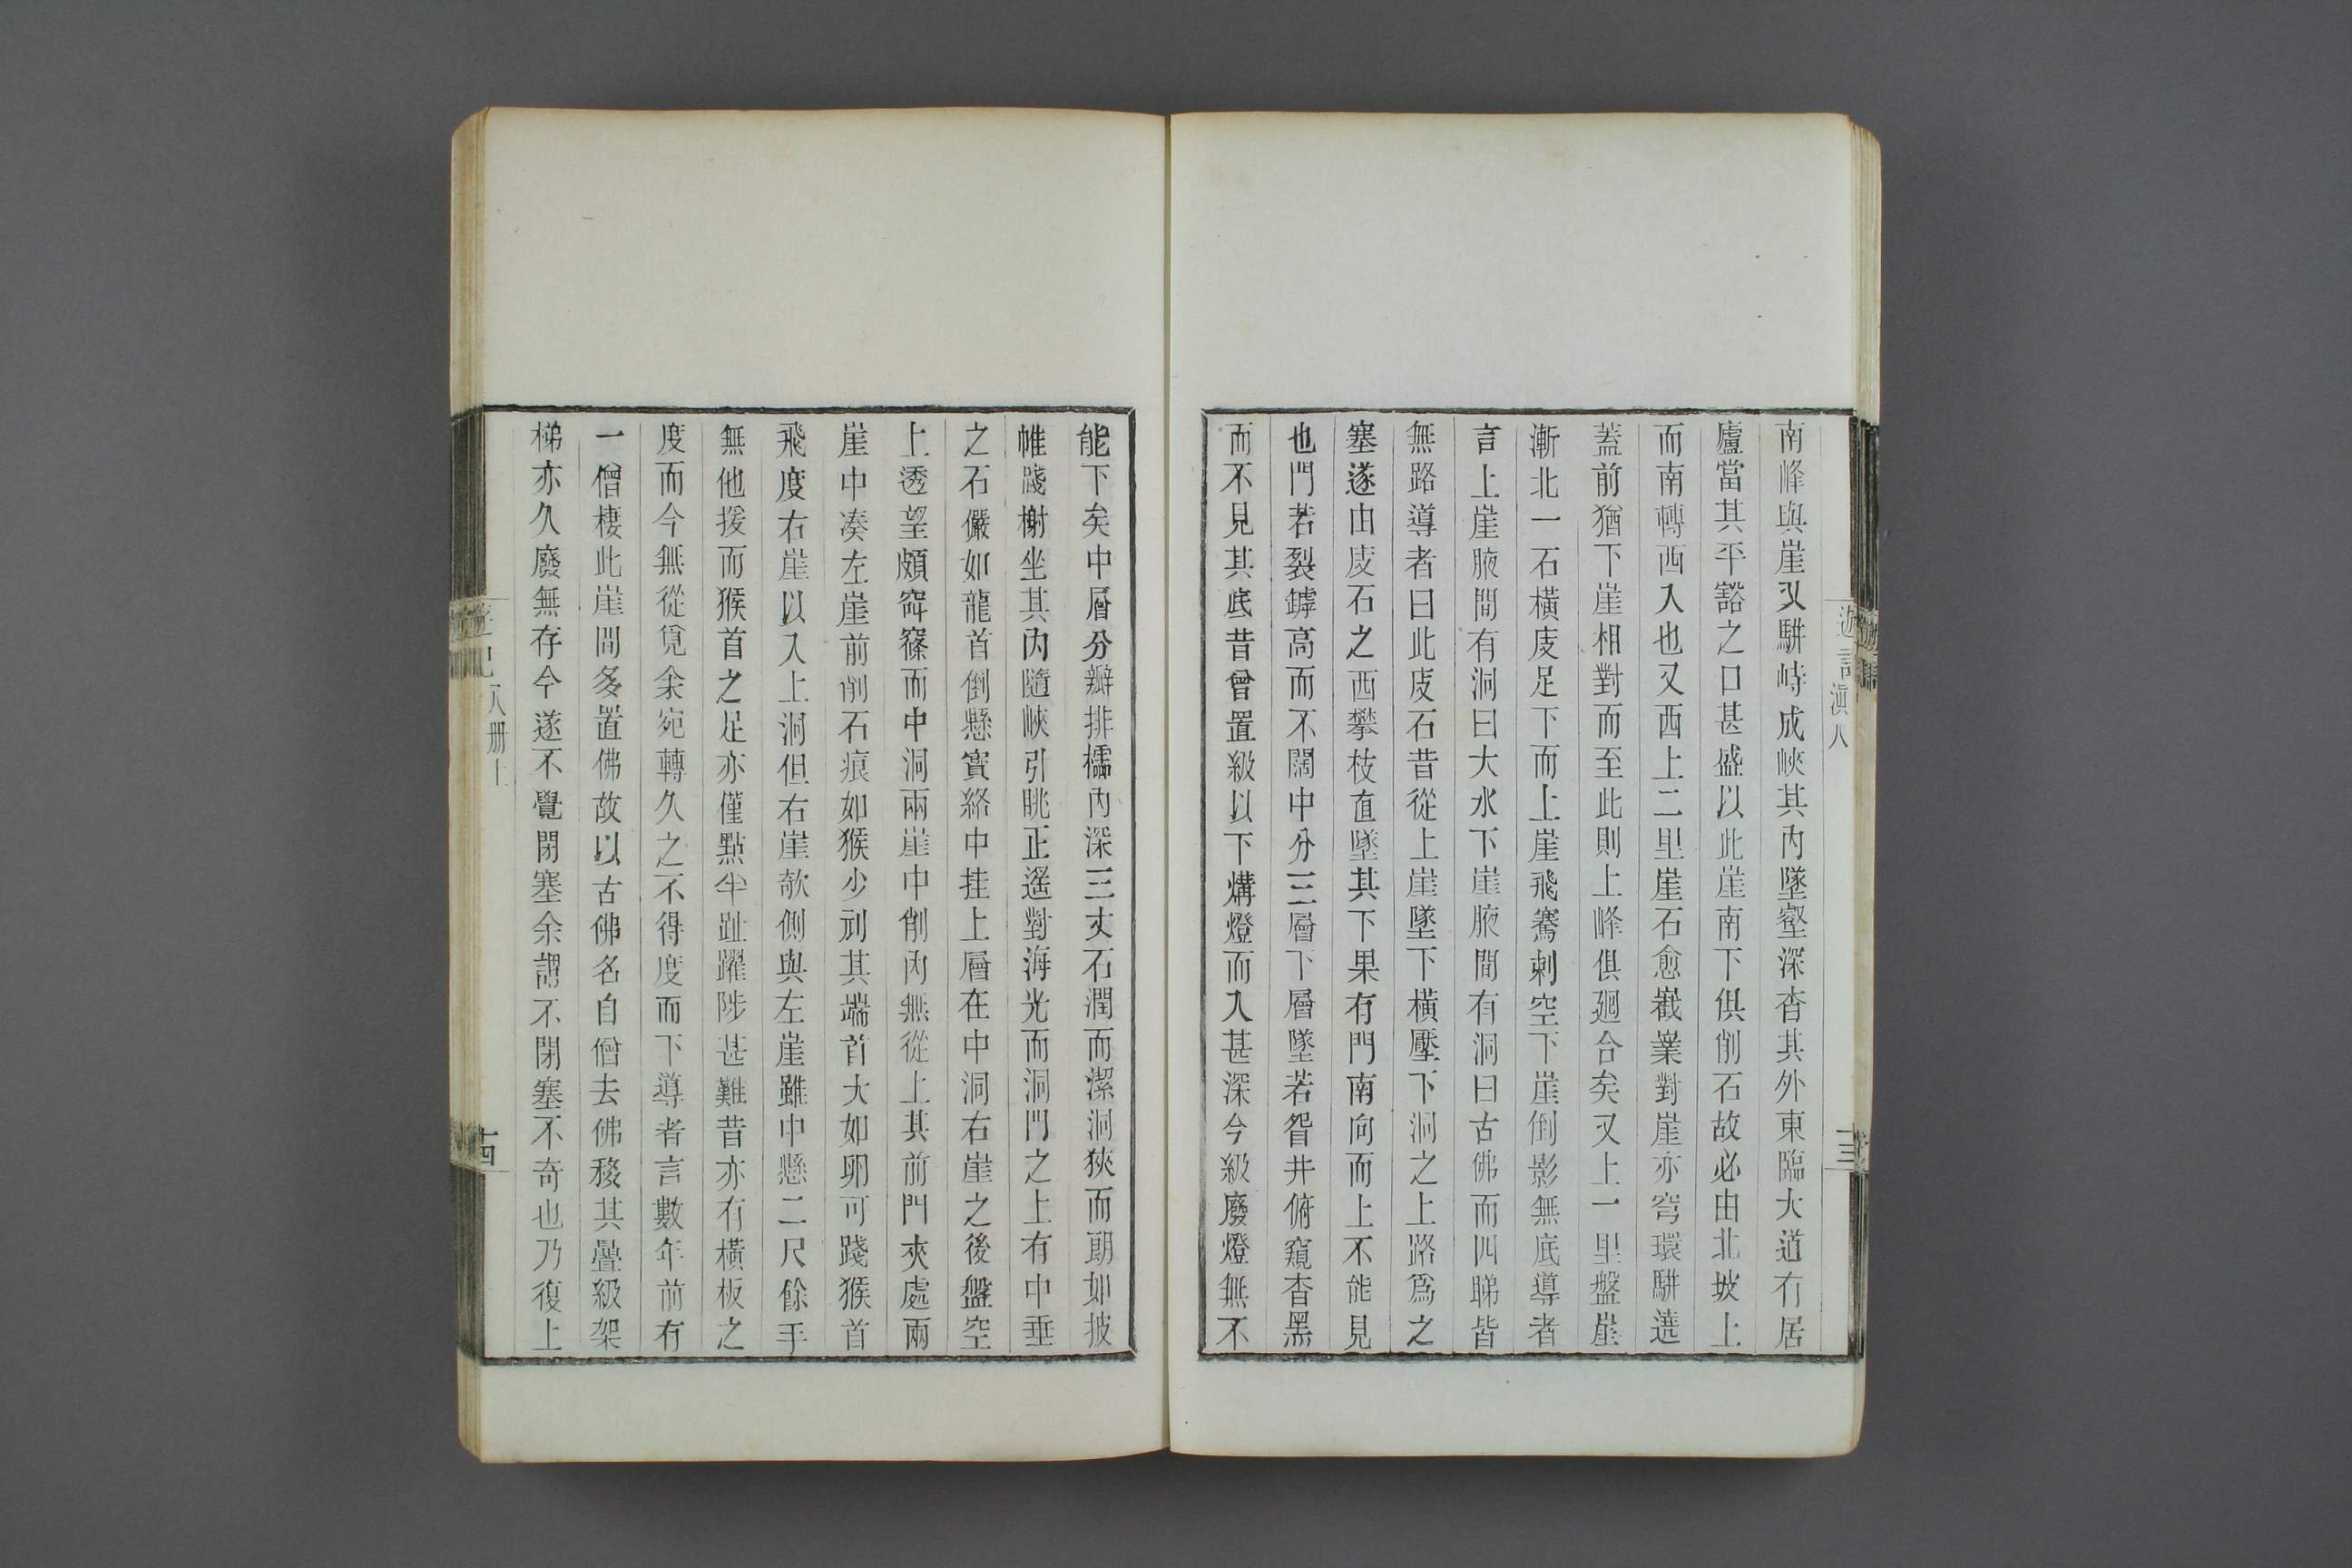 遊記滇八
南峰與崖又駢峙成峽其內墜壑深杳其外東臨大道有居
廬當其平豁之口甚盛以此崖南下俱削石故必由北坡上
而南轉西入也又西上二里崖石愈嶻嶪對崖亦穹環駢遶
蓋前猶下崖相對而至此則上峰俱迴合矣又上一里盤崖
漸北一石橫庋足下而上崖飛騫刺空下崖倒影無底導者
言上崖腋間有洞曰大水下崖腋間有洞曰古佛而四睇皆
無路導者曰此庋石昔從上崖墜下橫壓下洞之上路爲之
塞遂由庋石之西攀枝直墜其下果有門南向而上不能見
也門若裂罅高而不闊中分三層下層墜若眢井俯窺杳黑
而不見其底昔曾置級以下爇燈而入甚深今級廢燈無不
能下矣中層分瓣排櫺內深三丈石潤而潔洞狹而朗如披
帷踐榭坐其內隨峽引眺正遙對海光而洞門之上有中垂
之石儼如龍首倒懸寶絡中挂上層在中洞右崖之後盤空
上透望頗窈窱而中洞兩崖中削內無從上其前門夾處兩
崖中湊左崖前削石痕如猴少刓其端首大如卵可踐猴首
飛度右崖以入上洞但右崖欹側與左崖雖中懸二尺餘手
無他援而猴首之足亦僅點半趾躍陟甚難昔亦有橫板之
度而今無從覓余宛轉久之不得度而下導者言數年前有
一僧棲此崖間多置佛故以古佛名自僧去佛移其疊級架
梯亦久廢無存今遂不覺閉塞余謂不閉塞不奇也乃復上
八册上
十四